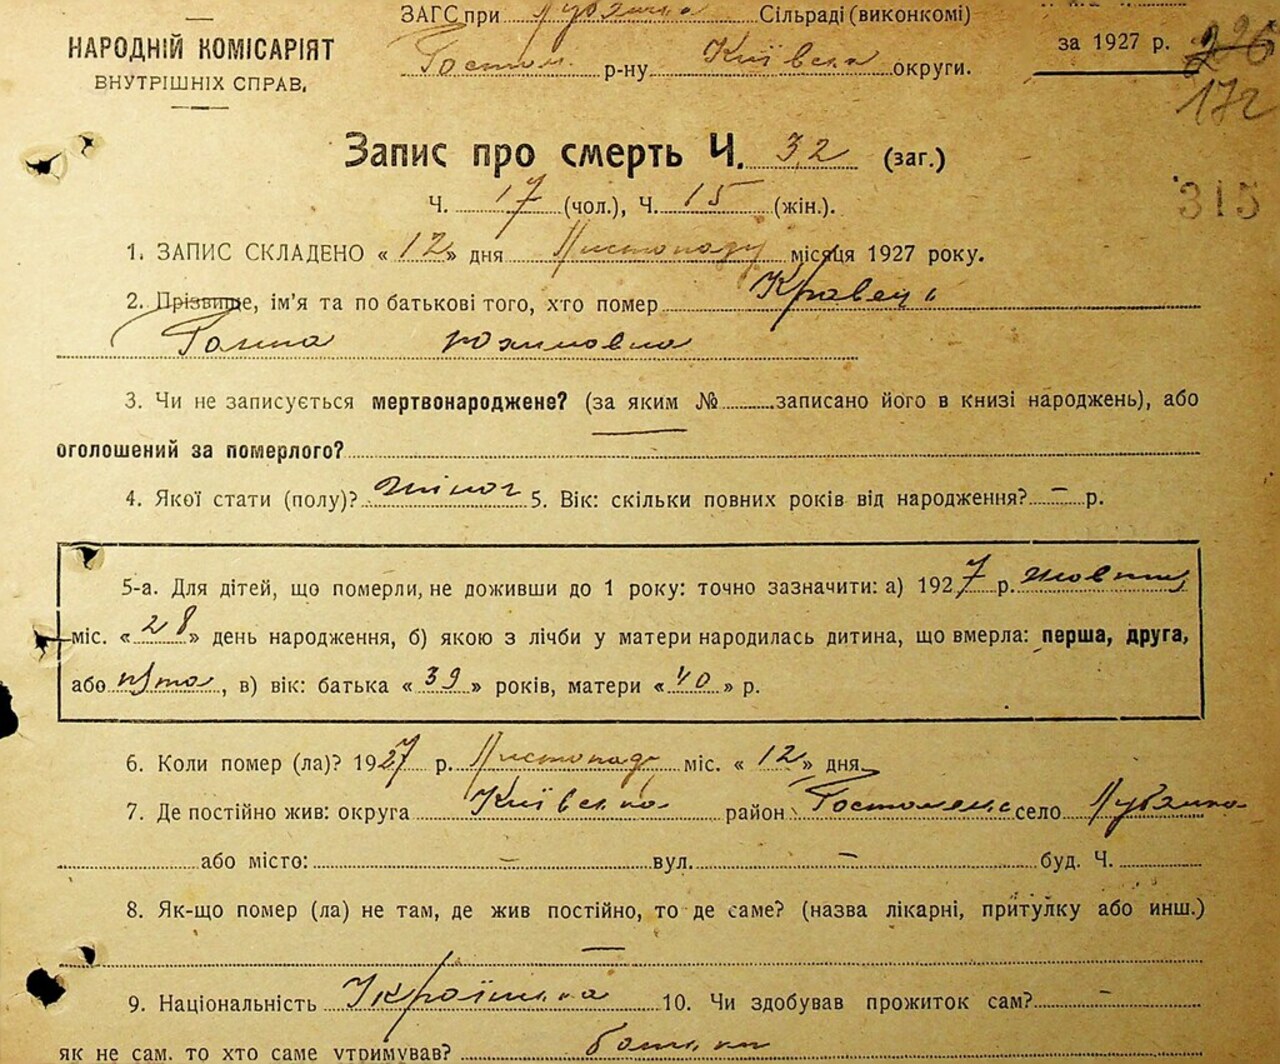 ЗАГС при Луб'янка Сільраді (виконкомі)
НАРОДНІЙ КОМІСАРІЯТ
ВНУТРІШНІХ СПРАВ.
Гостом. р-ну Київська округи.
за 1927 р. 226
172
Запис про смерть Ч. 32 (заг.)
Ч. 17 (чол.), Ч. 15 (жін.).
315
1. ЗАПИС СКЛАДЕНО « 12 » дня Листопаду місяця 1927 року.
2. Прізвище, ім'я та по батькові того, хто помер Кравець
Ганна
3. Чи не записується мертвонароджене? (за яким № записано його в книзі народжень), або
оголошений за померлого?
4. Якої стати (полу)? жіноч 5. Вік: скільки повних років від народження? – р.
5-а. Для дітей, що померли, не доживши до 1 року: точно зазначити: а) 1927 р. жовтня
міс. « 28 » день народження, б) якою з лічби у матери народилась дитина, що вмерла: перша, друга,
або п'ята, в) вік: батька « 39 » років, матери « 40 » р.
6. Коли помер (ла)? 1927 р. Листопаду міс. « 12 » дня
7. Де постійно жив: округа Київська район Гостомельс село Луб'янка
або місто: – вул. – буд. Ч.
8. Як-що помер (ла) не там, де жив постійно, то де саме? (назва лікарні, притулку або инш.)
—
9. Національність Українка 10. Чи здобував прожиток сам? –
як не сам, то хто саме утримував? батьки